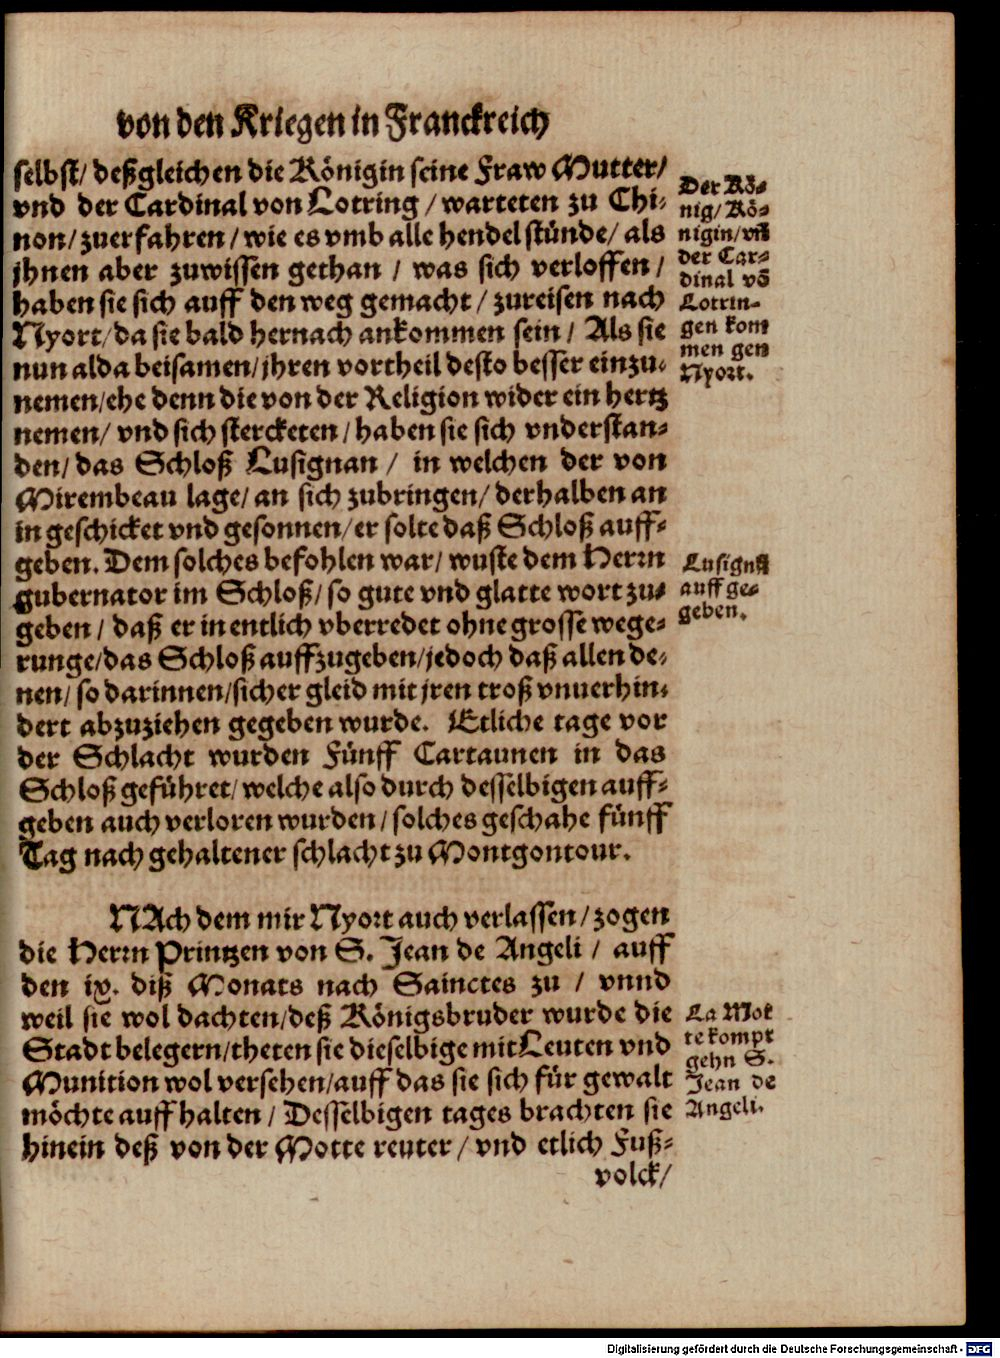 von den Kriegen in Franckreich
selbst/ deßgleichen die Königin seine Fraw Mutter/
vnd der Cardinal von Lotring / warteten zu Chi-
non/ zuerfahren / wie es vmb alle hendel stünde/ als
jhnen aber zuwissen gethan / was sich verloffen /
haben sie sich auff den weg gemacht / zureisen nach
Nyort/ da sie bald hernach ankommen sein / Als sie
nun alda beisamen/ jhren vortheil desto besser einzu-
nemen/ ehe denn die von der Religion wider ein hertz
nemen/ vnd sich stercketen / haben sie sich vnderstan-
den/ das Schloß Lusignan / in welchen der von
Mirembeau lage/ an sich zubringen/ derhalben an
in geschicket vnd gesonnen/ er solte daß Schloß auff-
geben. Dem solches befohlen war/ wuste dem Herrn
gubernator im Schloß/ so gute vnd glatte wort zu-
geben / daß er in entlich vberredet ohne grosse wege-
runge/ das Schloß auffzugeben/ jedoch daß allen de-
nen/ so darinnen/ sicher gleid mit jren troß vnuerhin-
dert abzuziehen gegeben wurde. Etliche tage vor
der Schlacht wurden Fünff Cartaunen in das
Schloß geführet/ welche also durch desselbigen auff-
geben auch verloren wurden / solches geschahe fünff
Tag nach gehaltener schlacht zu Montgontour.
NAch dem mir Nyort auch verlassen / zogen
die Herrn Printzen von S. Jean de Angeli / auff
den ix. diß Monats nach Sainctes zu / vnnd
weil sie wol dachten/ deß Königsbruder wurde die
Stadt belegern/ theten sie dieselbige mit Leuten vnd
Munition wol versehen/ auff das sie sich für gewalt
möchte auff halten / Desselbigen tages brachten sie
hinein deß von der Motte reuter / vnd etlich Fuß-
volck/
Der Kö-
nig/ Kö-
nigin/ vñ
der Car-
dinal võ
Lotrin-
gen kom
men gen
Nyort.
Lusignã
auff ge-
geben.
La Mot
te kompt
gehn S.
Jean de
Angeli.
Digitalisierung gefördert durch die Deutsche Forschungsgemeinschaft - DFG